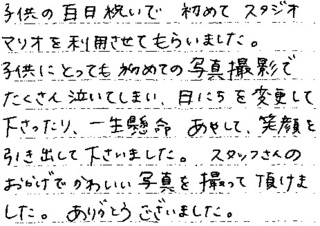 子供の百日祝いで 初めて スタジオ
マリオを利用させてもらいました。
子供にとっても初めての写真撮影で
たくさん泣いてしまい、日にちを変更して
下さったり、一生懸命 あやして、笑顔を
引き出して下さいました。 スタッフさんの
おかげでかわいい写真を撮って頂けま
した。 ありがとうございました。